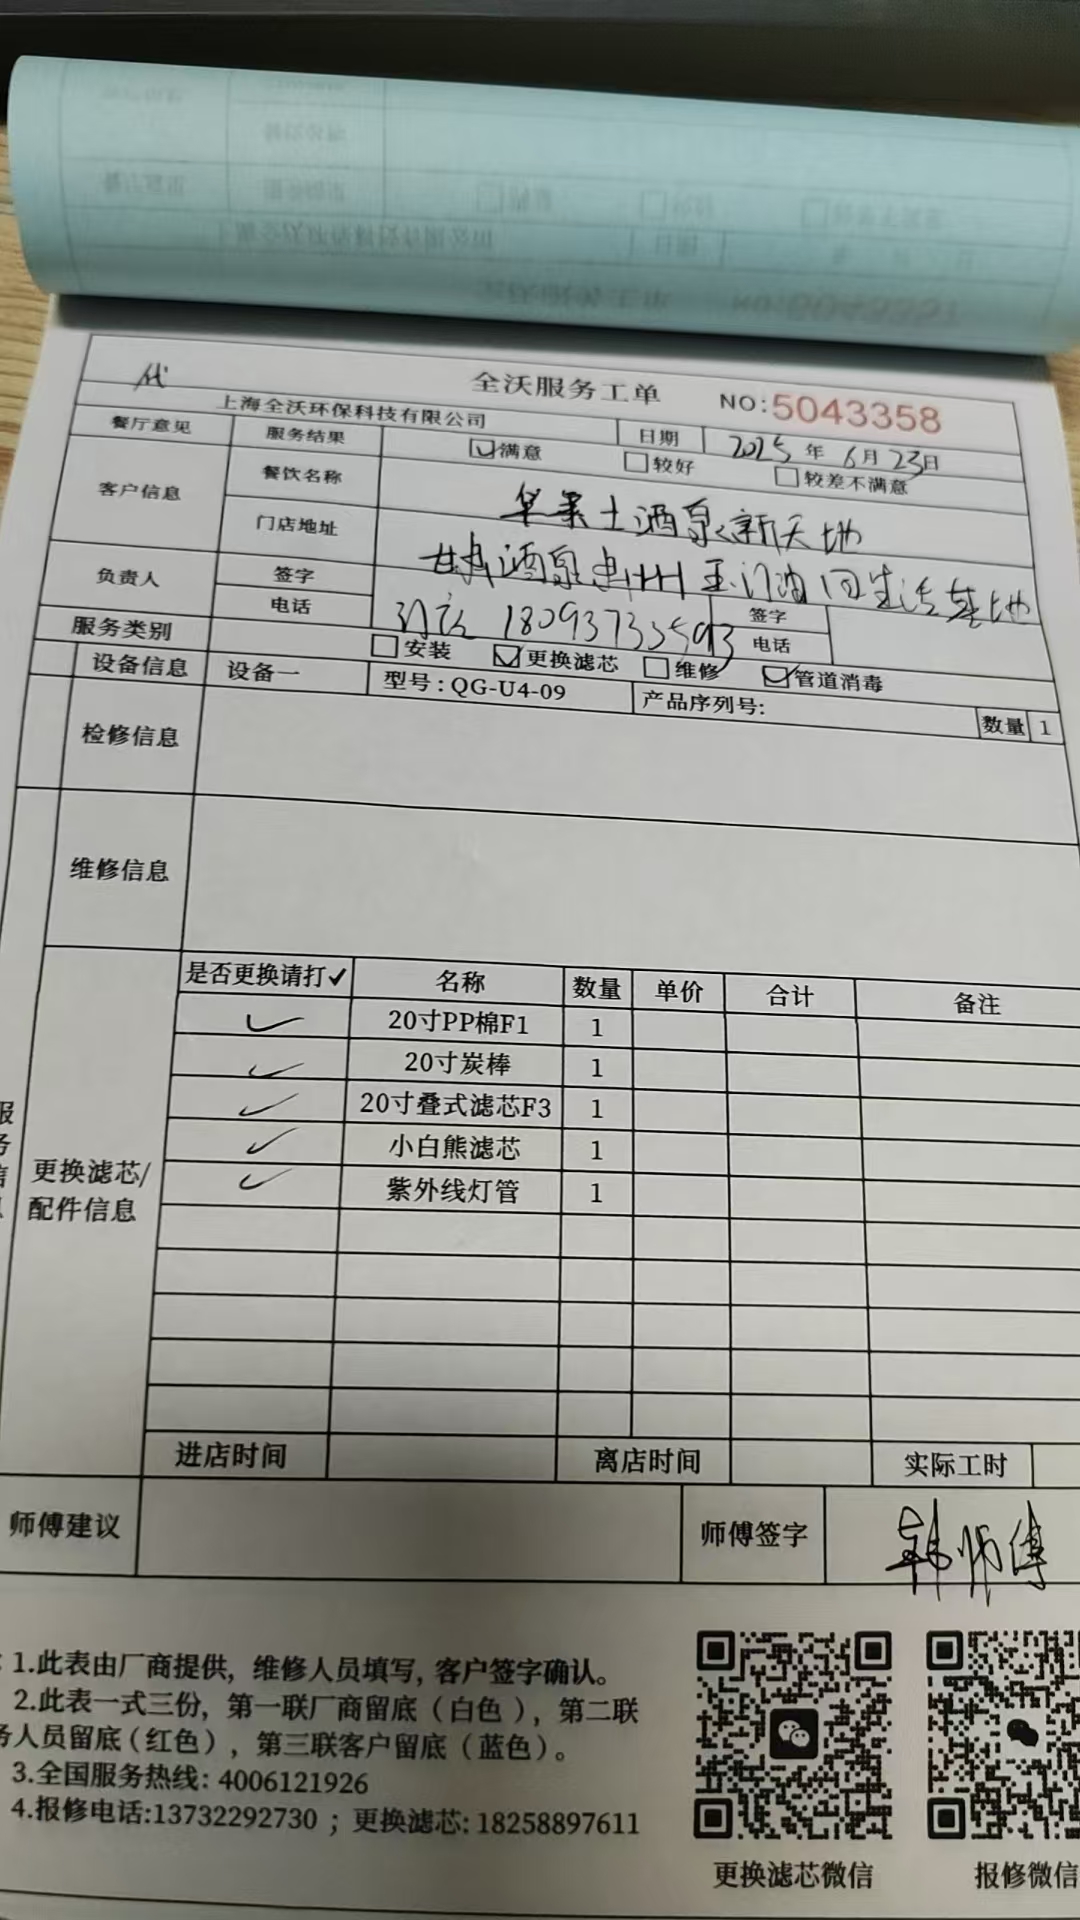 全沃服务工单 NO:5043358
上海全沃环保科技有限公司 日期 2025年6月23日
餐厅意见 服务结果 满意 较好 较差不满意
客户信息 餐饮名称 华莱士酒泉新天地
门店地址 甘肃酒泉肃州玉门油田生活基地
负责人 签字 签字
电话 18093733593 电话
服务类别 安装 更换滤芯 维修 管道消毒
设备信息 设备一 型号:QG-U4-09 产品序列号: 数量 1
检修信息
维修信息
服务信息
更换滤芯/
配件信息
是否更换请打✓ 名称 数量 单价 合计 备注
✓ 20寸PP棉F1 1
✓ 20寸炭棒 1
✓ 20寸叠式滤芯F3 1
✓ 小白熊滤芯 1
✓ 紫外线灯管 1
进店时间 离店时间 实际工时
师傅建议 师傅签字 韩师傅
1.此表由厂商提供,维修人员填写,客户签字确认。
2.此表一式三份,第一联厂商留底(白色),第二联
务人员留底(红色),第三联客户留底(蓝色)。
3.全国服务热线:4006121926
4.报修电话:13732292730;更换滤芯:18258897611
更换滤芯微信 报修微信